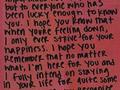 but to everyone who has
been lucky enough to know
you. I hope you know that
when you're feeling down,
I only ever strive for your
happiness. I hope you
remember that no matter
what, I'm here for you and
I fully intend on staying
in your life for quite some